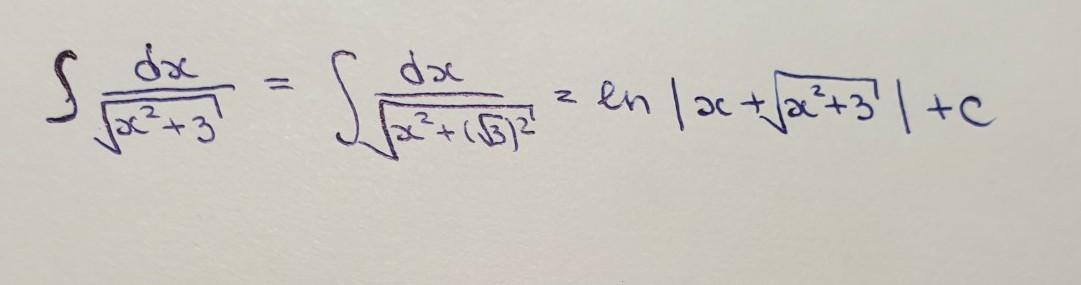 ∫ dx/√(x²+3) = ∫ dx/√(x²+(√3)²) = ln |x+√(x²+3)| +C